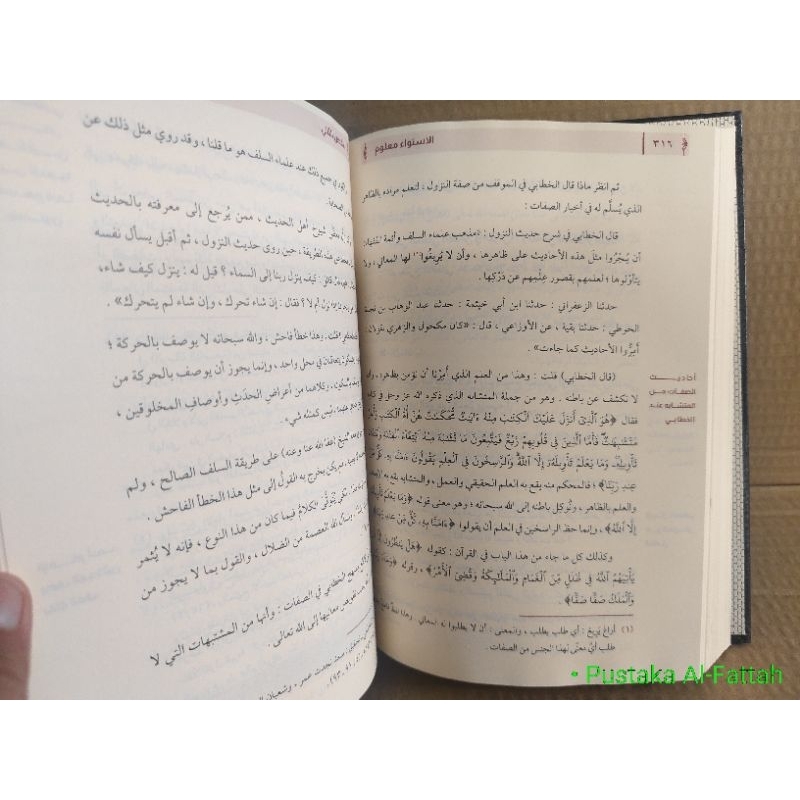 ٣١٦
الاستواء معلوم
ثم انظر ماذا قال الخطابي في الموقف من صفة النزول، لتعلم مراده بالظاهر
الذي يُسلَّم له في أخبار الصفات:
قال الخطابي في شرح حديث النزول: «مذهب علماء السلف وأئمة الفقهاء
أن يُجْرُوا مثلَ هذه الأحاديث على ظاهرها، وأن لا يُرِيغُوا(١) لها المعاني، ولا
يتأوَّلوها؛ لعلمهم بقصور عِلْمِهم عن دَرْكِها.
حدثنا الزعفراني: حدثنا ابن أبي خيثمة: حدثنا عبد الوهاب بن نجدة
الحوطي: حدثنا بقية، عن الأوزاعي، قال: «كان مكحول والزهري يقولان:
أمِرُّوا الأحاديث كما جاءت».
(قال الخطابي) قلت: وهذا من العلم الذي أُمِرْنا أن نؤمن بظاهره، وأن
لا نكشف عن باطنه. وهو من جملة المتشابه الذي ذكره الله في كتابه
فقال ﴿هُوَ الَّذِي أَنزَلَ عَلَيْكَ الْكِتَابَ مِنْهُ آيَاتٌ مُّحْكَمَاتٌ هُنَّ أُمُّ الْكِتَابِ وَأُخَرُ
مُتَشَابِهَاتٌ فَأَمَّا الَّذِينَ فِي قُلُوبِهِمْ زَيْغٌ فَيَتَّبِعُونَ مَا تَشَابَهَ مِنْهُ ابْتِغَاءَ الْفِتْنَةِ وَابْتِغَاءَ
تَأْوِيلِهِ وَمَا يَعْلَمُ تَأْوِيلَهُ إِلَّا اللَّهُ وَالرَّاسِخُونَ فِي الْعِلْمِ يَقُولُونَ آمَنَّا بِهِ كُلٌّ مِّنْ
عِندِ رَبِّنَا﴾؛ فالمحكم منه يقع به العلم الحقيقي والعمل، والمتشابه يقع به
والعلم بالظاهر، ونُوكِل باطنه إلى الله سبحانه؛ وهو معنى قوله ﴿وَمَا يَعْلَمُ تَأْوِيلَهُ
إِلَّا اللَّهُ﴾، وإنما حظ الراسخين في العلم أن يقولوا ﴿آمَنَّا بِهِ كُلٌّ مِّنْ عِندِ
وكذلك كل ما جاء من هذا الباب في القرآن؛ كقوله ﴿هَلْ يَنظُرُونَ
يَأْتِيَهُمُ اللَّهُ فِي ظُلَلٍ مِّنَ الْغَمَامِ وَالْمَلَائِكَةُ وَقُضِيَ الْأَمْرُ﴾، وقوله ﴿وَجَاءَ
وَالْمَلَكُ صَفًّا صَفًّا﴾.
أحاديث
الصفات من
المتشابه عند
الخطابي
(١) أراغ يُريغ: أي طلب يطلب، والمعنى: أن لا يطلبوا له المعاني. وهذا
طلب أيِّ معنًى لهذا الجنس من الصفات.
ذلك عند علماء السلف هو ما قلنا، وقد روي مثل ذلك عن
الصحابة.
شيوخ أهل الحديث، ممن يُرجع إلى معرفته بالحديث
هذه الطريقة، حين روى حديث النزول، ثم أقبل يسأل نفسه
كيف ينزل ربنا إلى السماء؟ قيل له: ينزل كيف شاء،
أم لا؟ فقال: إن شاء تحرك، وإن شاء لم يتحرك».
وهذا خطأ فاحش، والله سبحانه لا يوصف بالحركة؛
يتعاقبان في محل واحد، وإنما يجوز أن يوصف بالحركة من
وكلاهما من أعراض الحدَث وأوصاف المخلوقين،
ليس كمثله شيء.
(عفا الله عنا وعنه) على طريقة السلف الصالح، ولم
يكن يخرج به القولُ إلى مثل هذا الخطأ الفاحش.
الكلامُ فيما كان من هذا النوع، فإنه لا يُثمر
ونسأل الله العصمة من الضلال، والقول بما لا يجوز من
الخطابي في الصفات: وأنها من المتشبهات التي لا
معانيها إلى الله تعالى.
• Pustaka Al-Fattah